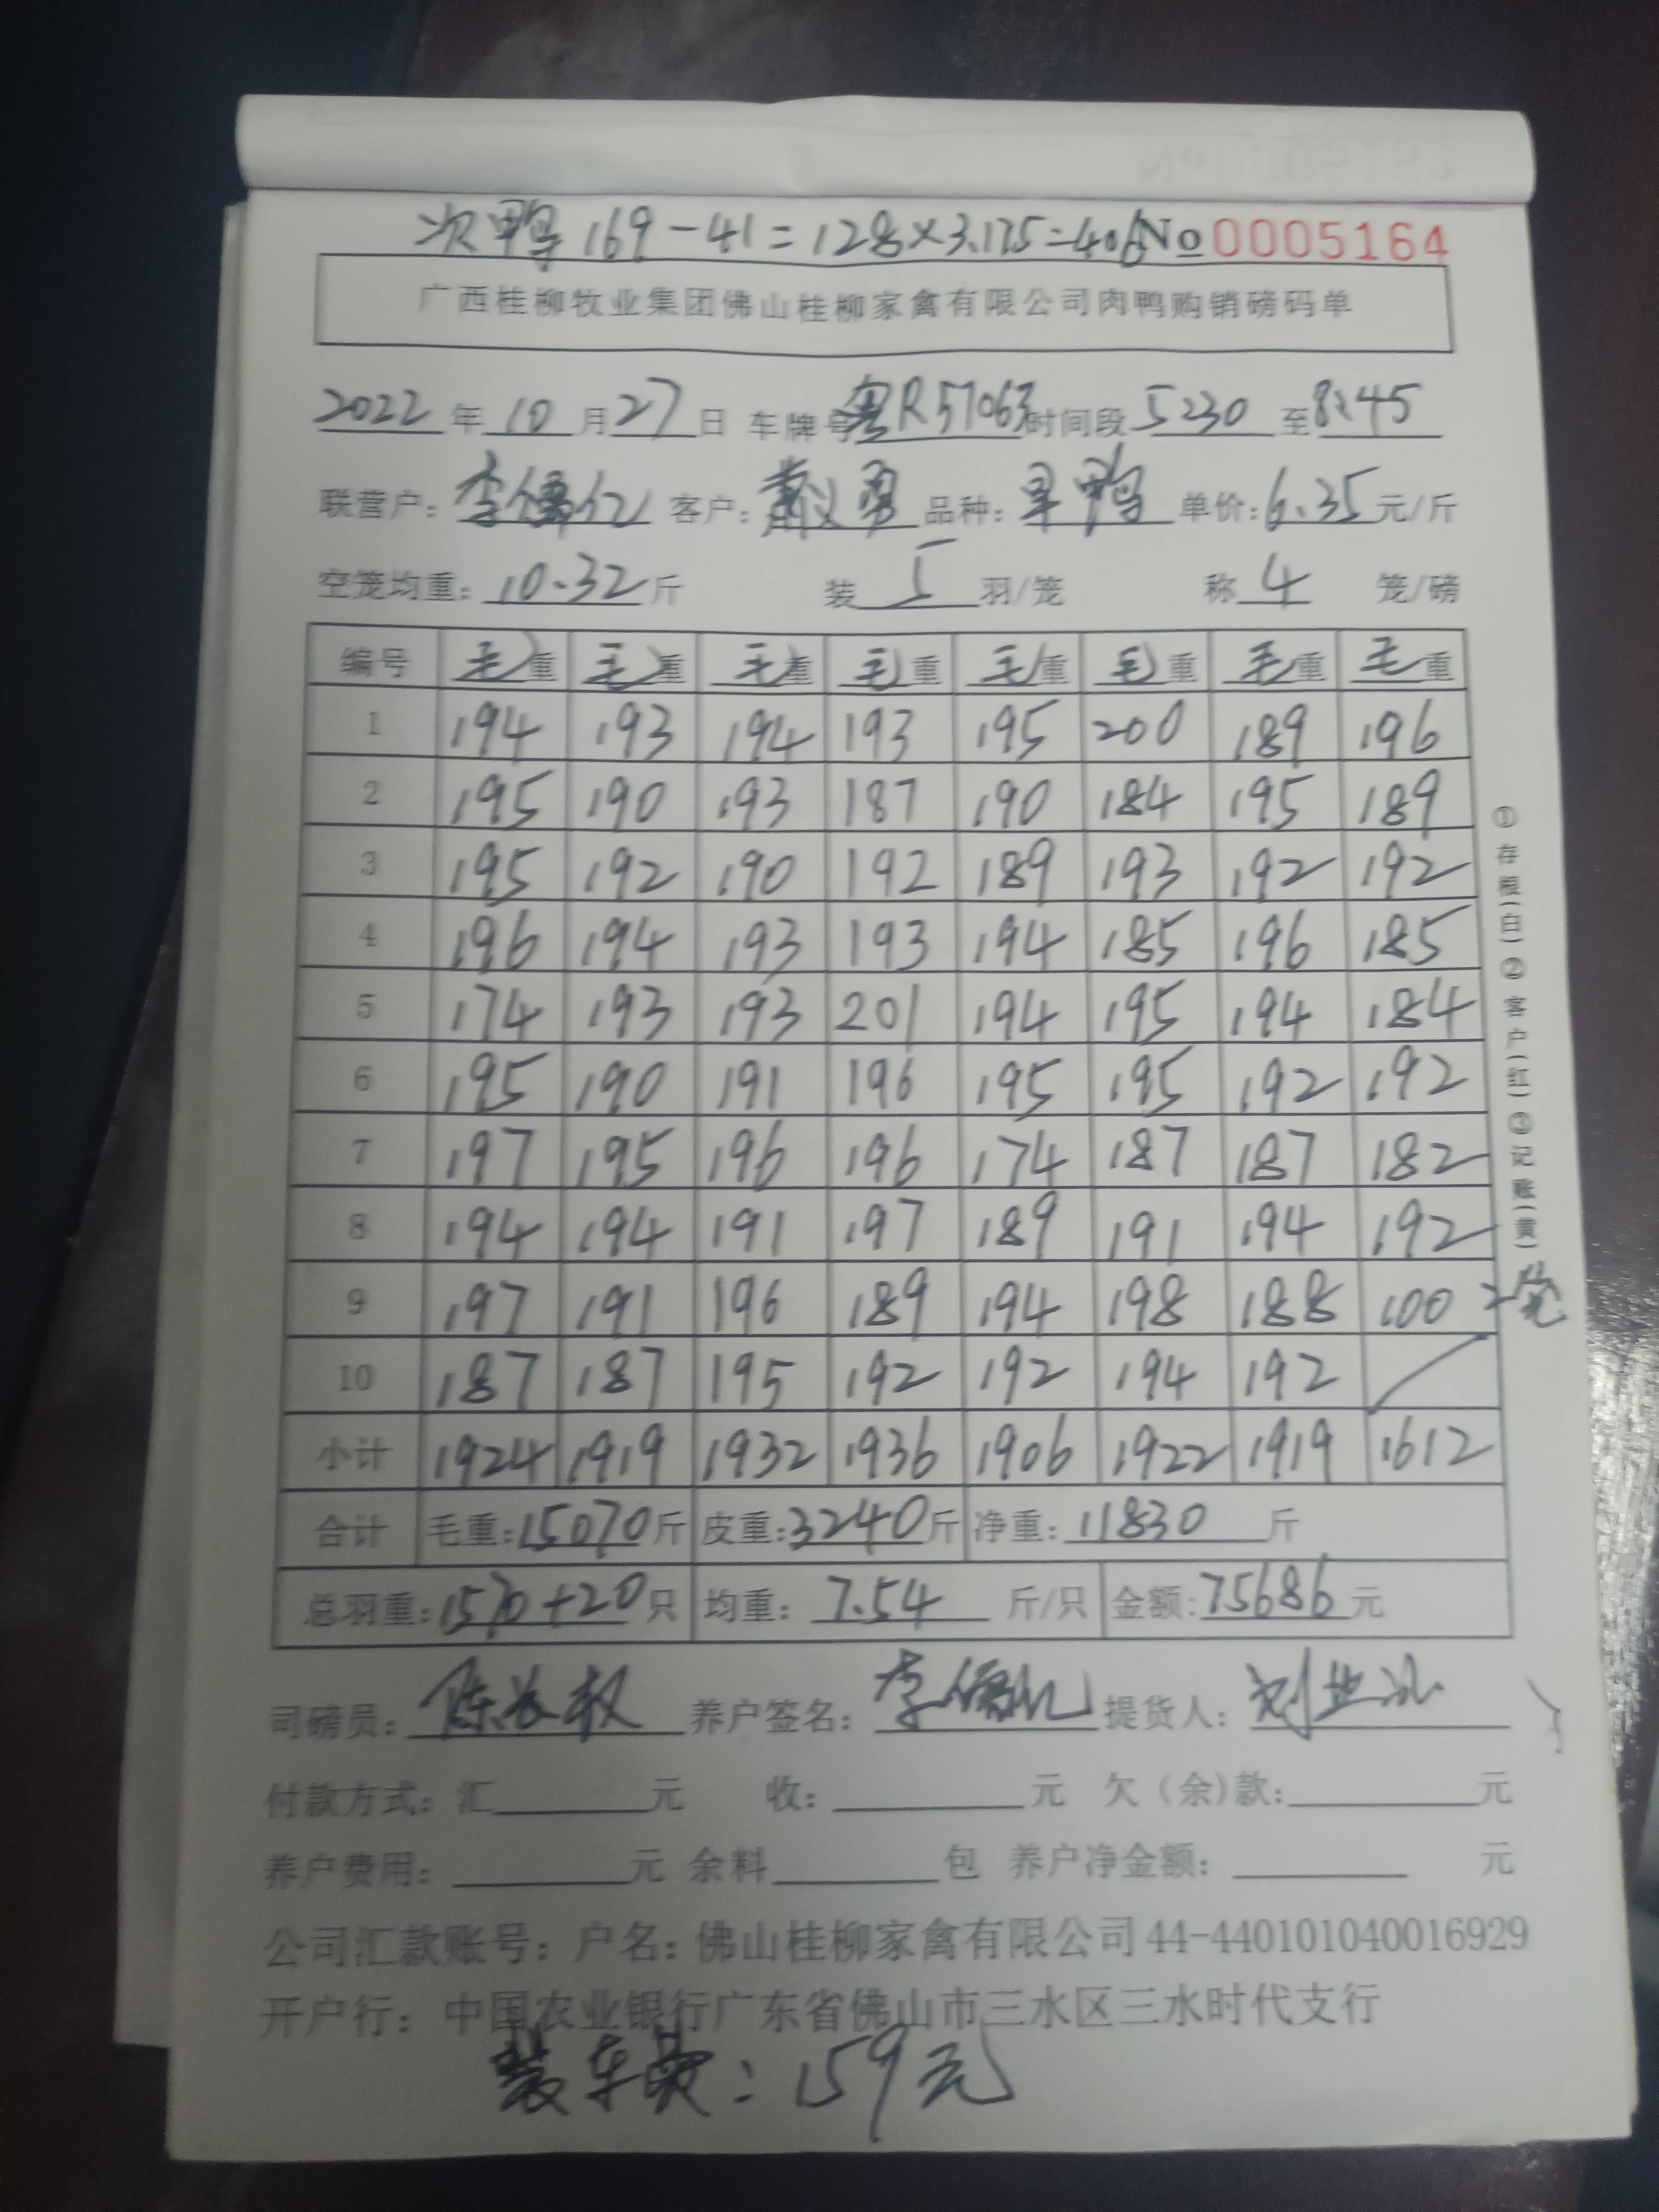 次鸭 169-41=128×3.175=406 No 0005164
广西桂柳牧业集团佛山桂柳家禽有限公司肉鸭购销磅码单
2022 年 10 月 27 日 车牌号 粤R57063 时间段 5:30 至 8:45
联营户: 李儒仁 客户: 勇 品种: 旱鸭 单价: 6.35 元/斤
空笼均重: 10.32 斤 装 5 羽/笼 称 4 笼/磅
编号 毛重 毛重 毛重 毛重 毛重 毛重 毛重 毛重
1 194 193 194 193 195 200 189 196
2 195 190 193 187 190 184 195 189
3 195 192 190 192 189 193 192 192
4 196 194 193 193 194 185 196 185
5 174 193 193 201 194 195 194 184
6 195 190 191 196 195 195 192 192
7 197 195 196 196 174 187 187 182
8 194 194 191 197 189 191 194 192
9 197 191 196 189 194 198 188 100 2笼
10 187 187 195 192 192 194 192
小计 1924 1919 1932 1936 1906 1922 1919 1612
合计 毛重: 15070 斤 皮重: 3240 斤 净重: 11830 斤
总羽重: 1570+20 只 均重: 7.54 斤/只 金额: 75686 元
司磅员: 陈 权 养户签名: 李儒仁 提货人: 刘业
付款方式: 汇 元 收: 元 欠(余)款: 元
养户费用: 元 余料 包 养户净金额: 元
公司汇款账号: 户名: 佛山桂柳家禽有限公司 44-440101040016929
开户行: 中国农业银行广东省佛山市三水区三水时代支行
装车费: 159元
①存根(白)②客户(红)③记账(黄)